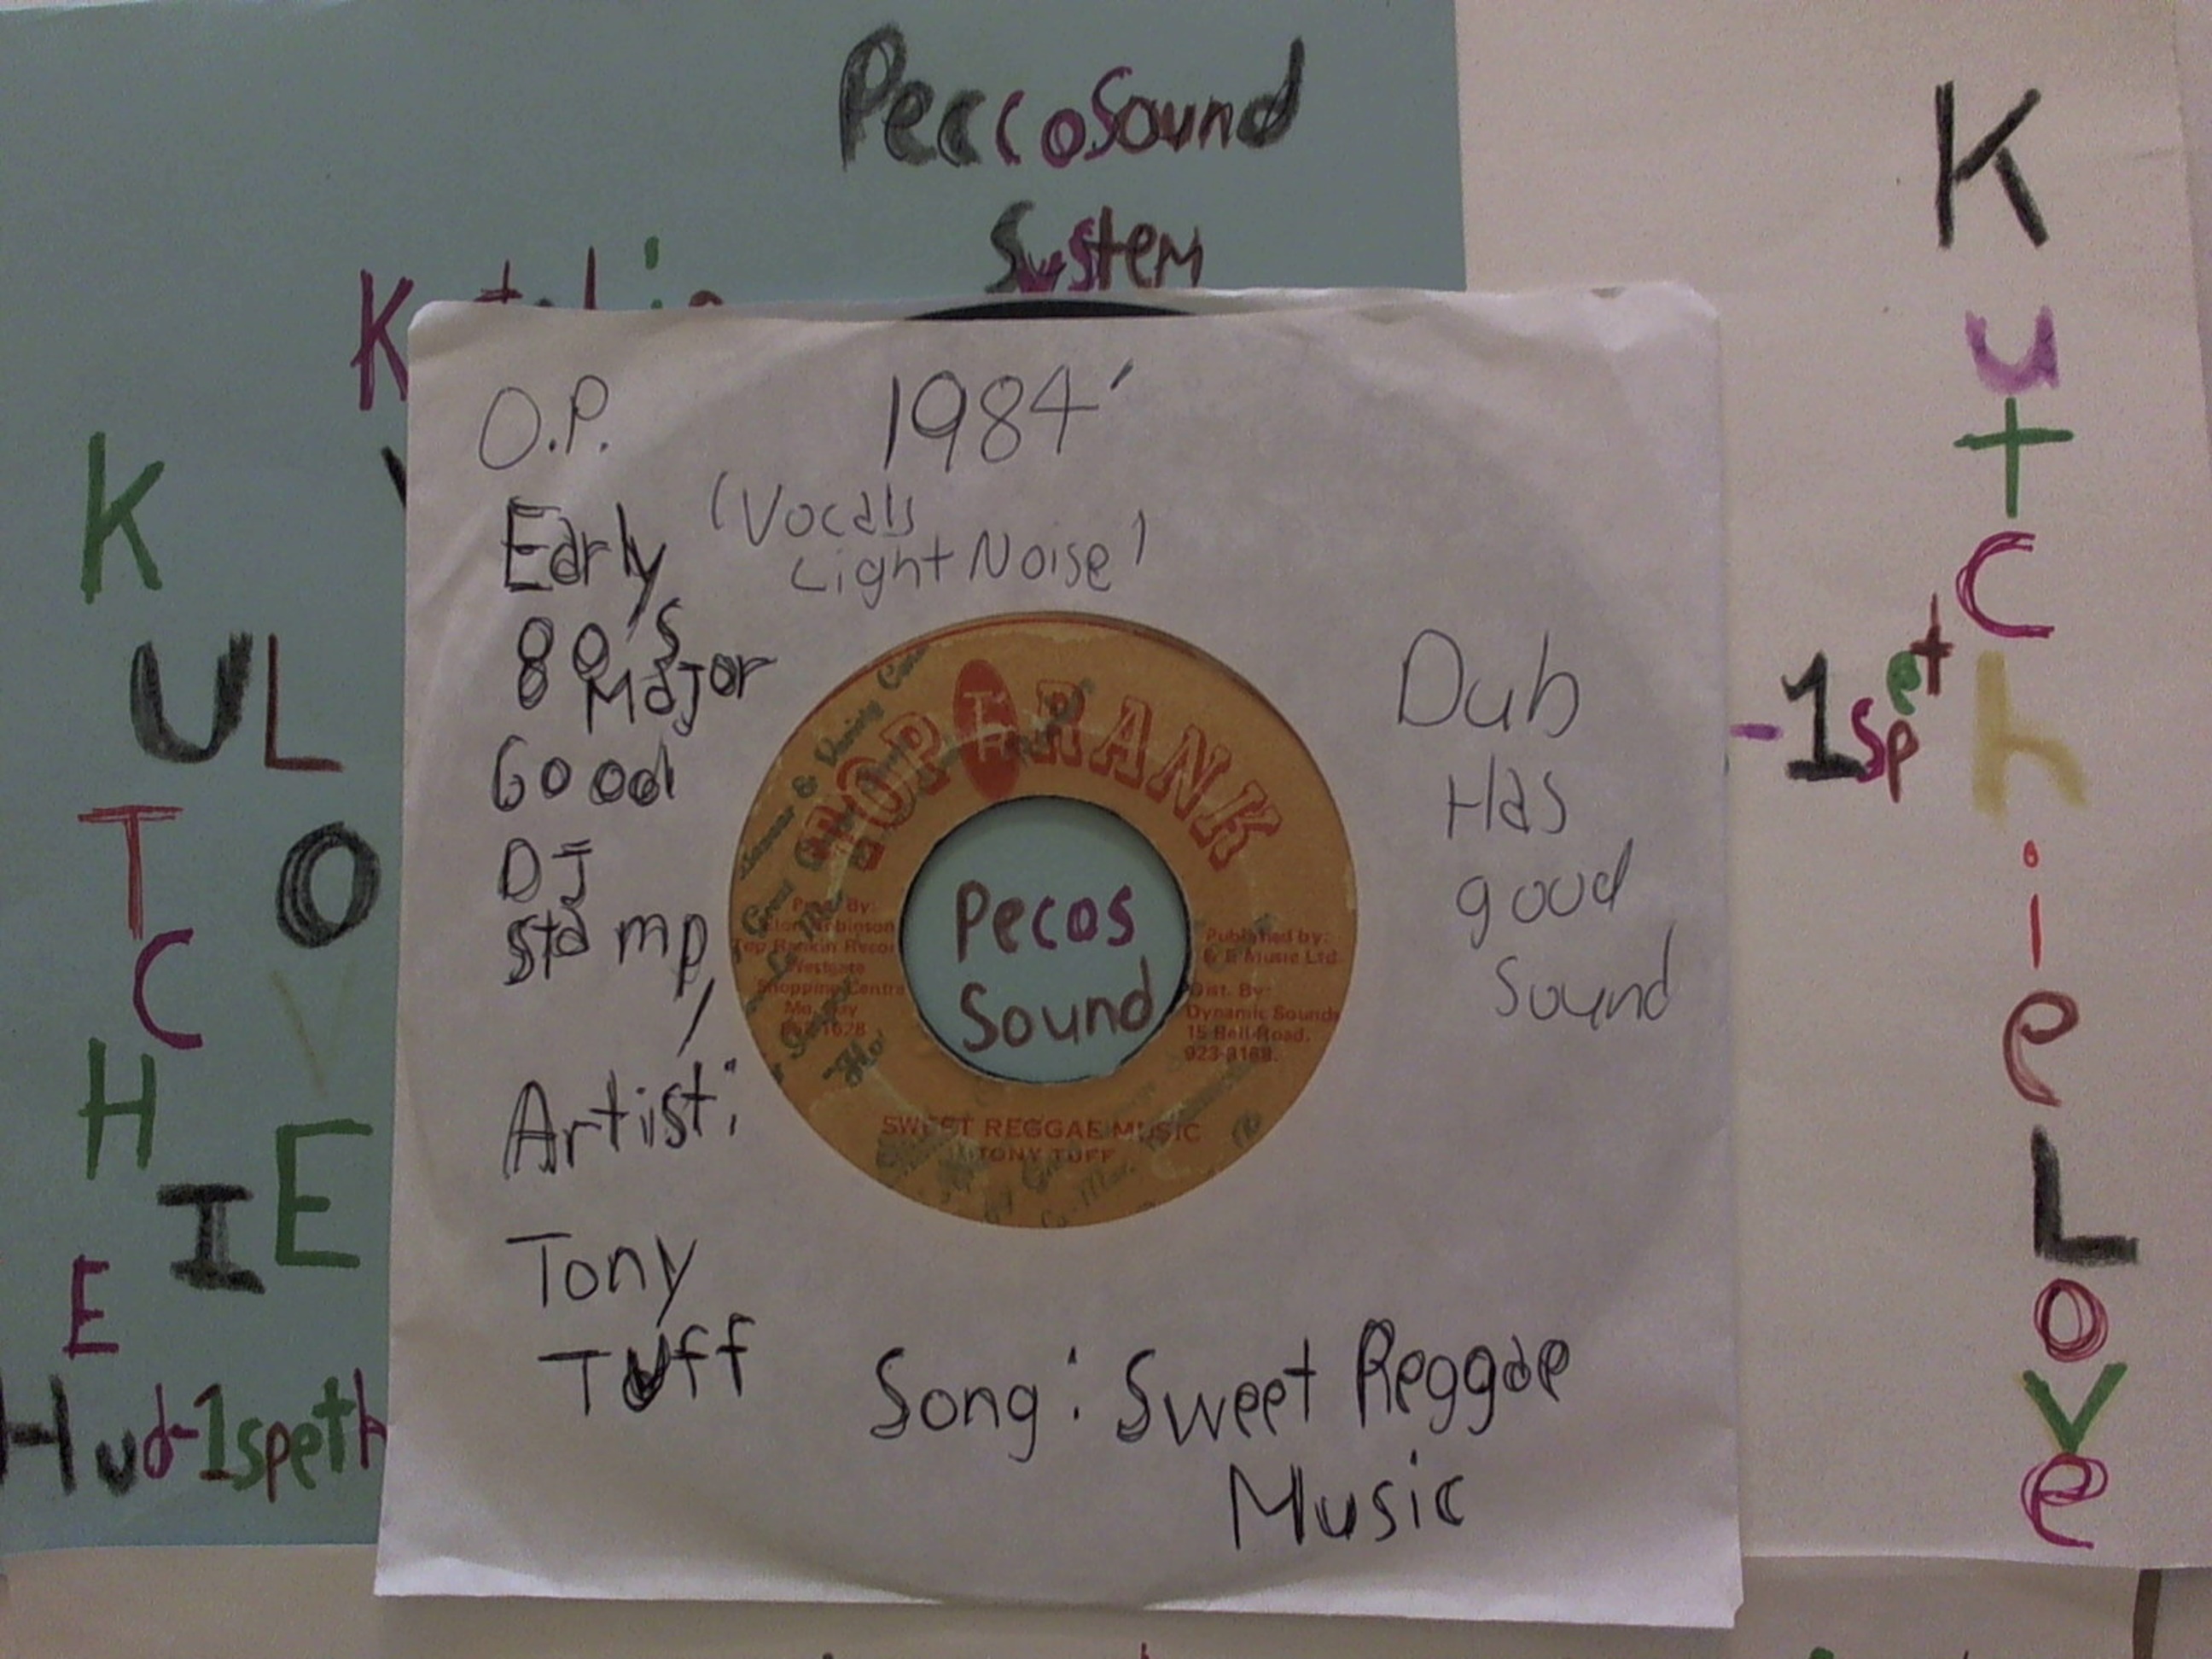 PeccoSound
System
K
K
UL
T
O
C
V
H
E
I
E
Hud-1speth
O.P.
1984'
(Vocals
Light Noise)
Early
80's
Major
Good
DJ
stamp,
Artist:
Tony
Tuff
Song: Sweet Reggae
Music
Dub
Has
good
Sound
TOP RANK
Prod. By:
Top Rankin Recor
Westgate
Shopping Centre
Mo. Bay
Published by:
Music Ltd.
Dist. By:
Dynamic Sounds
15 Bell Road.
Pecos
Sound
SWEET REGGAE MUSIC
TONY TUFF
-1spet
K
u
t
C
h
i
e
L
o
v
e